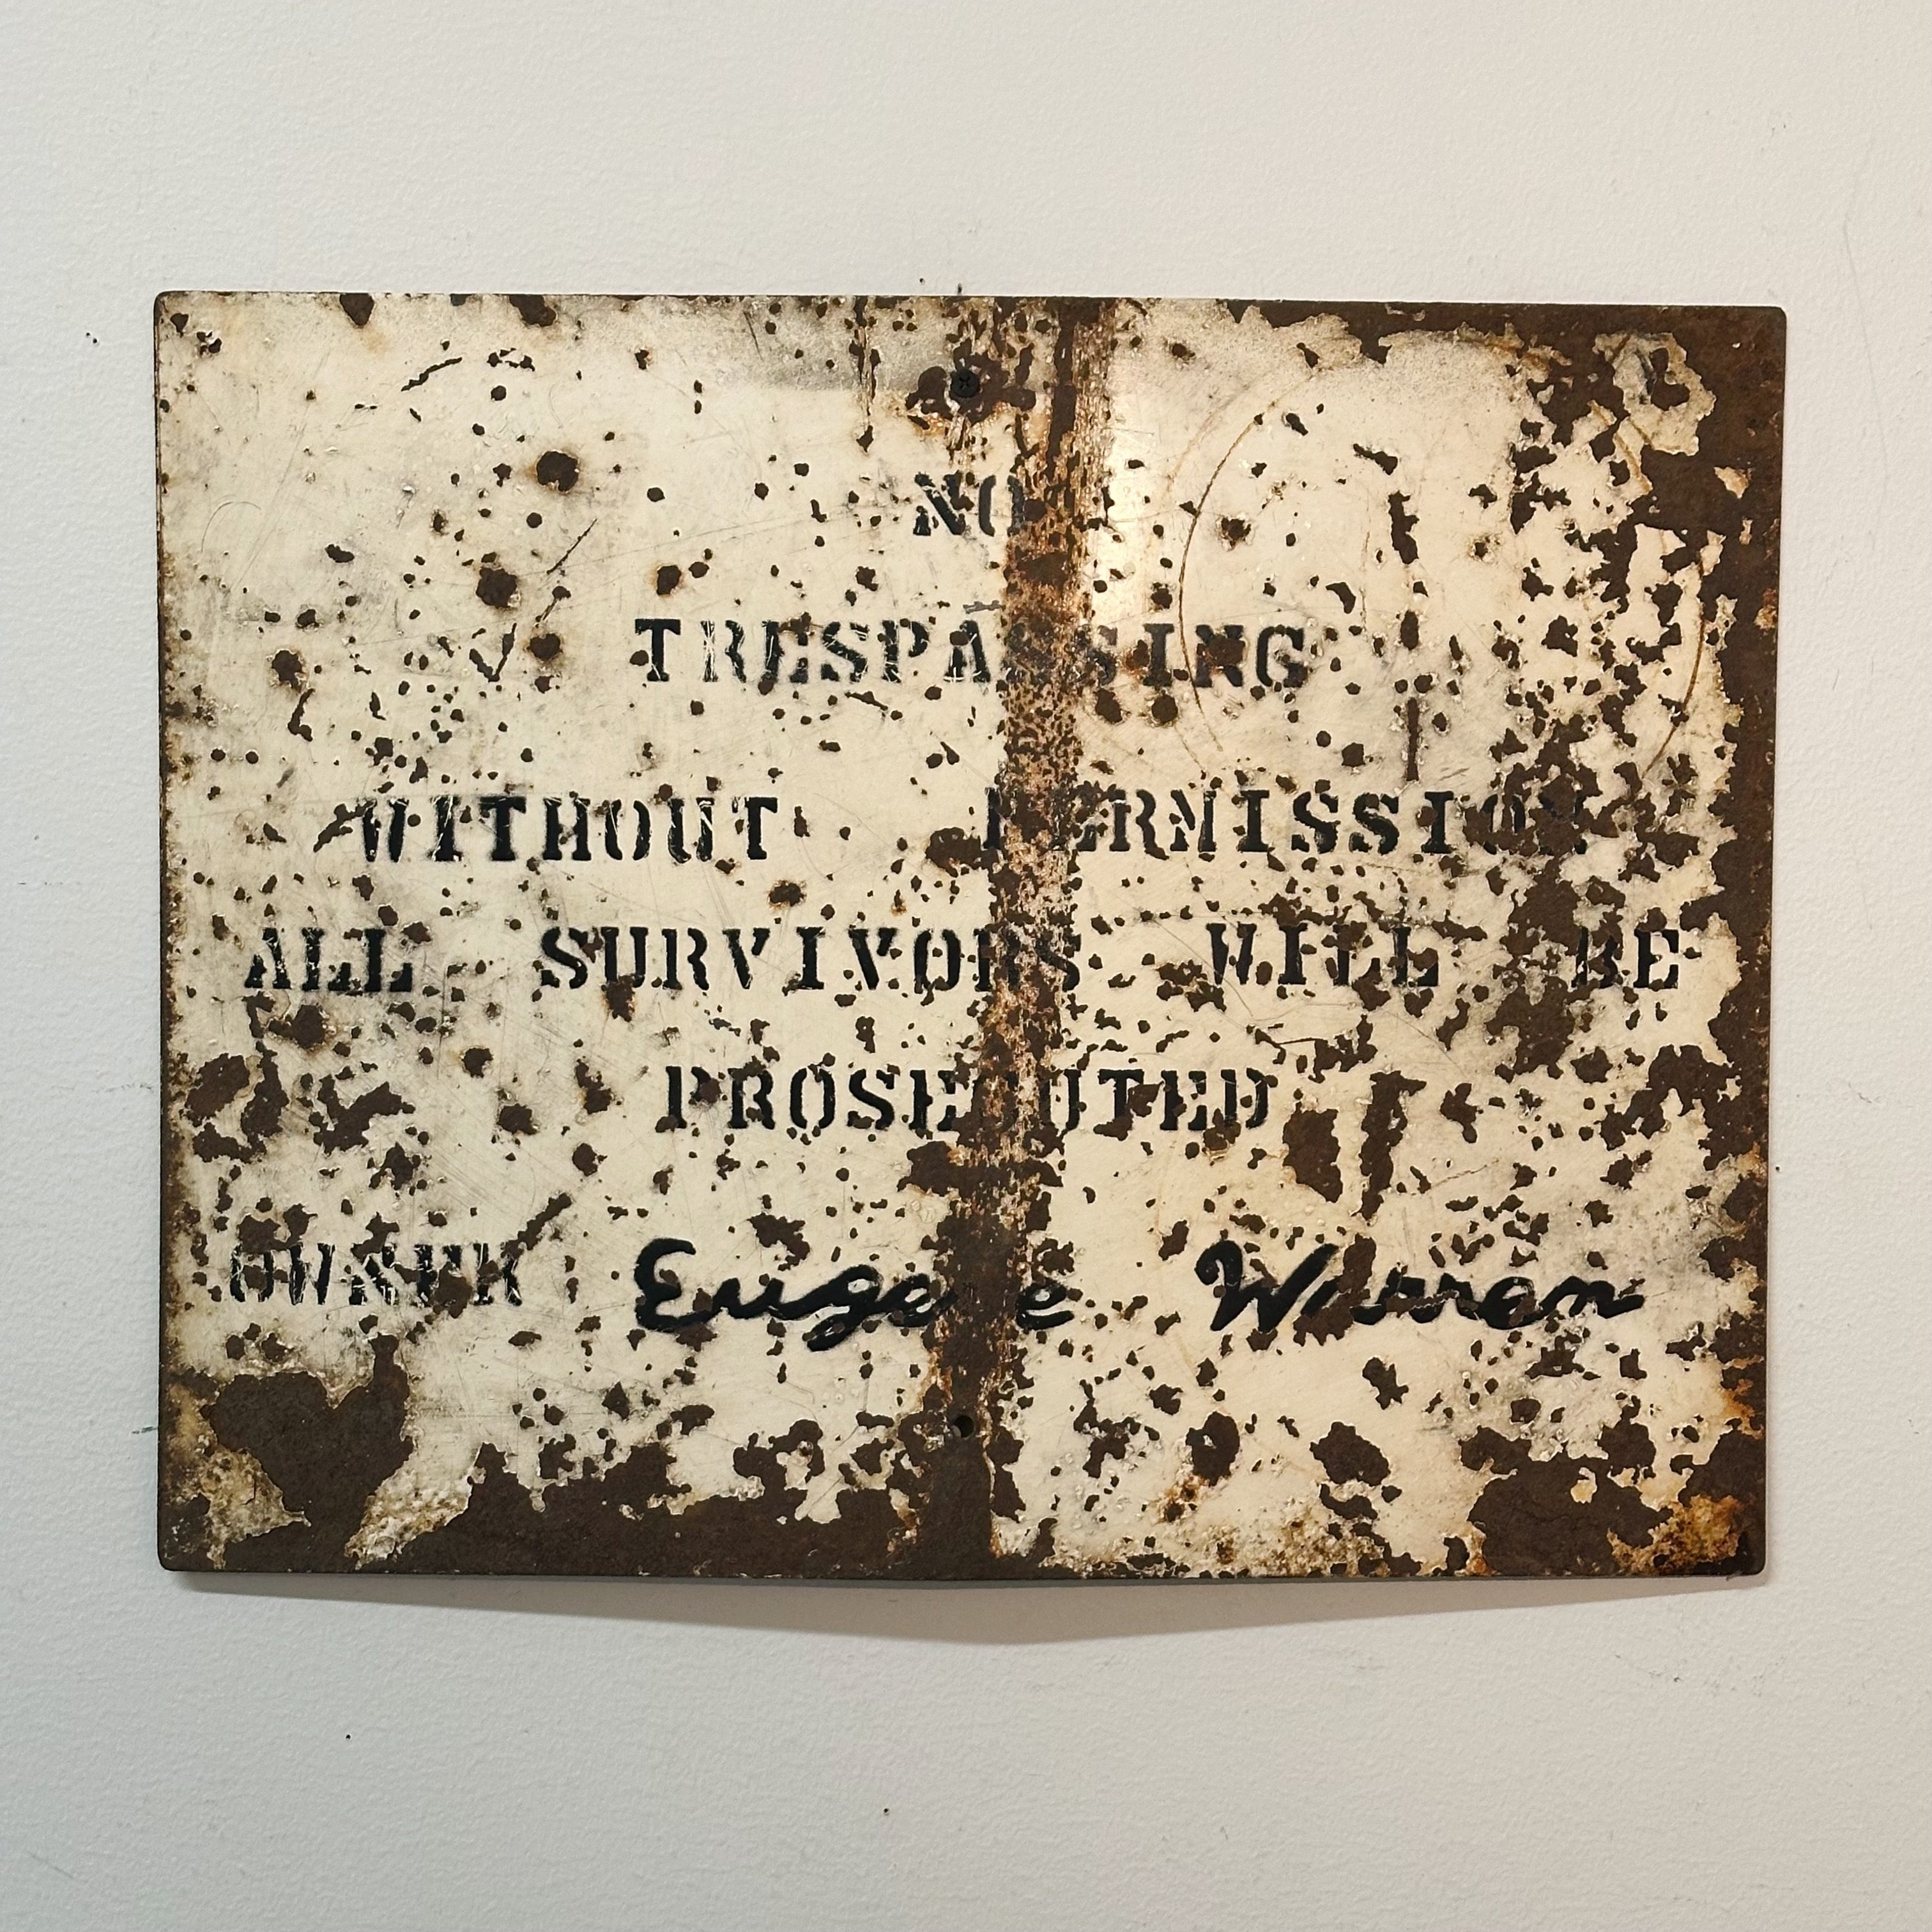 NO
TRESPASSING
WITHOUT PERMISSION
ALL SURVIVORS WILL BE
PROSECUTED
OWNER Eugene Warren